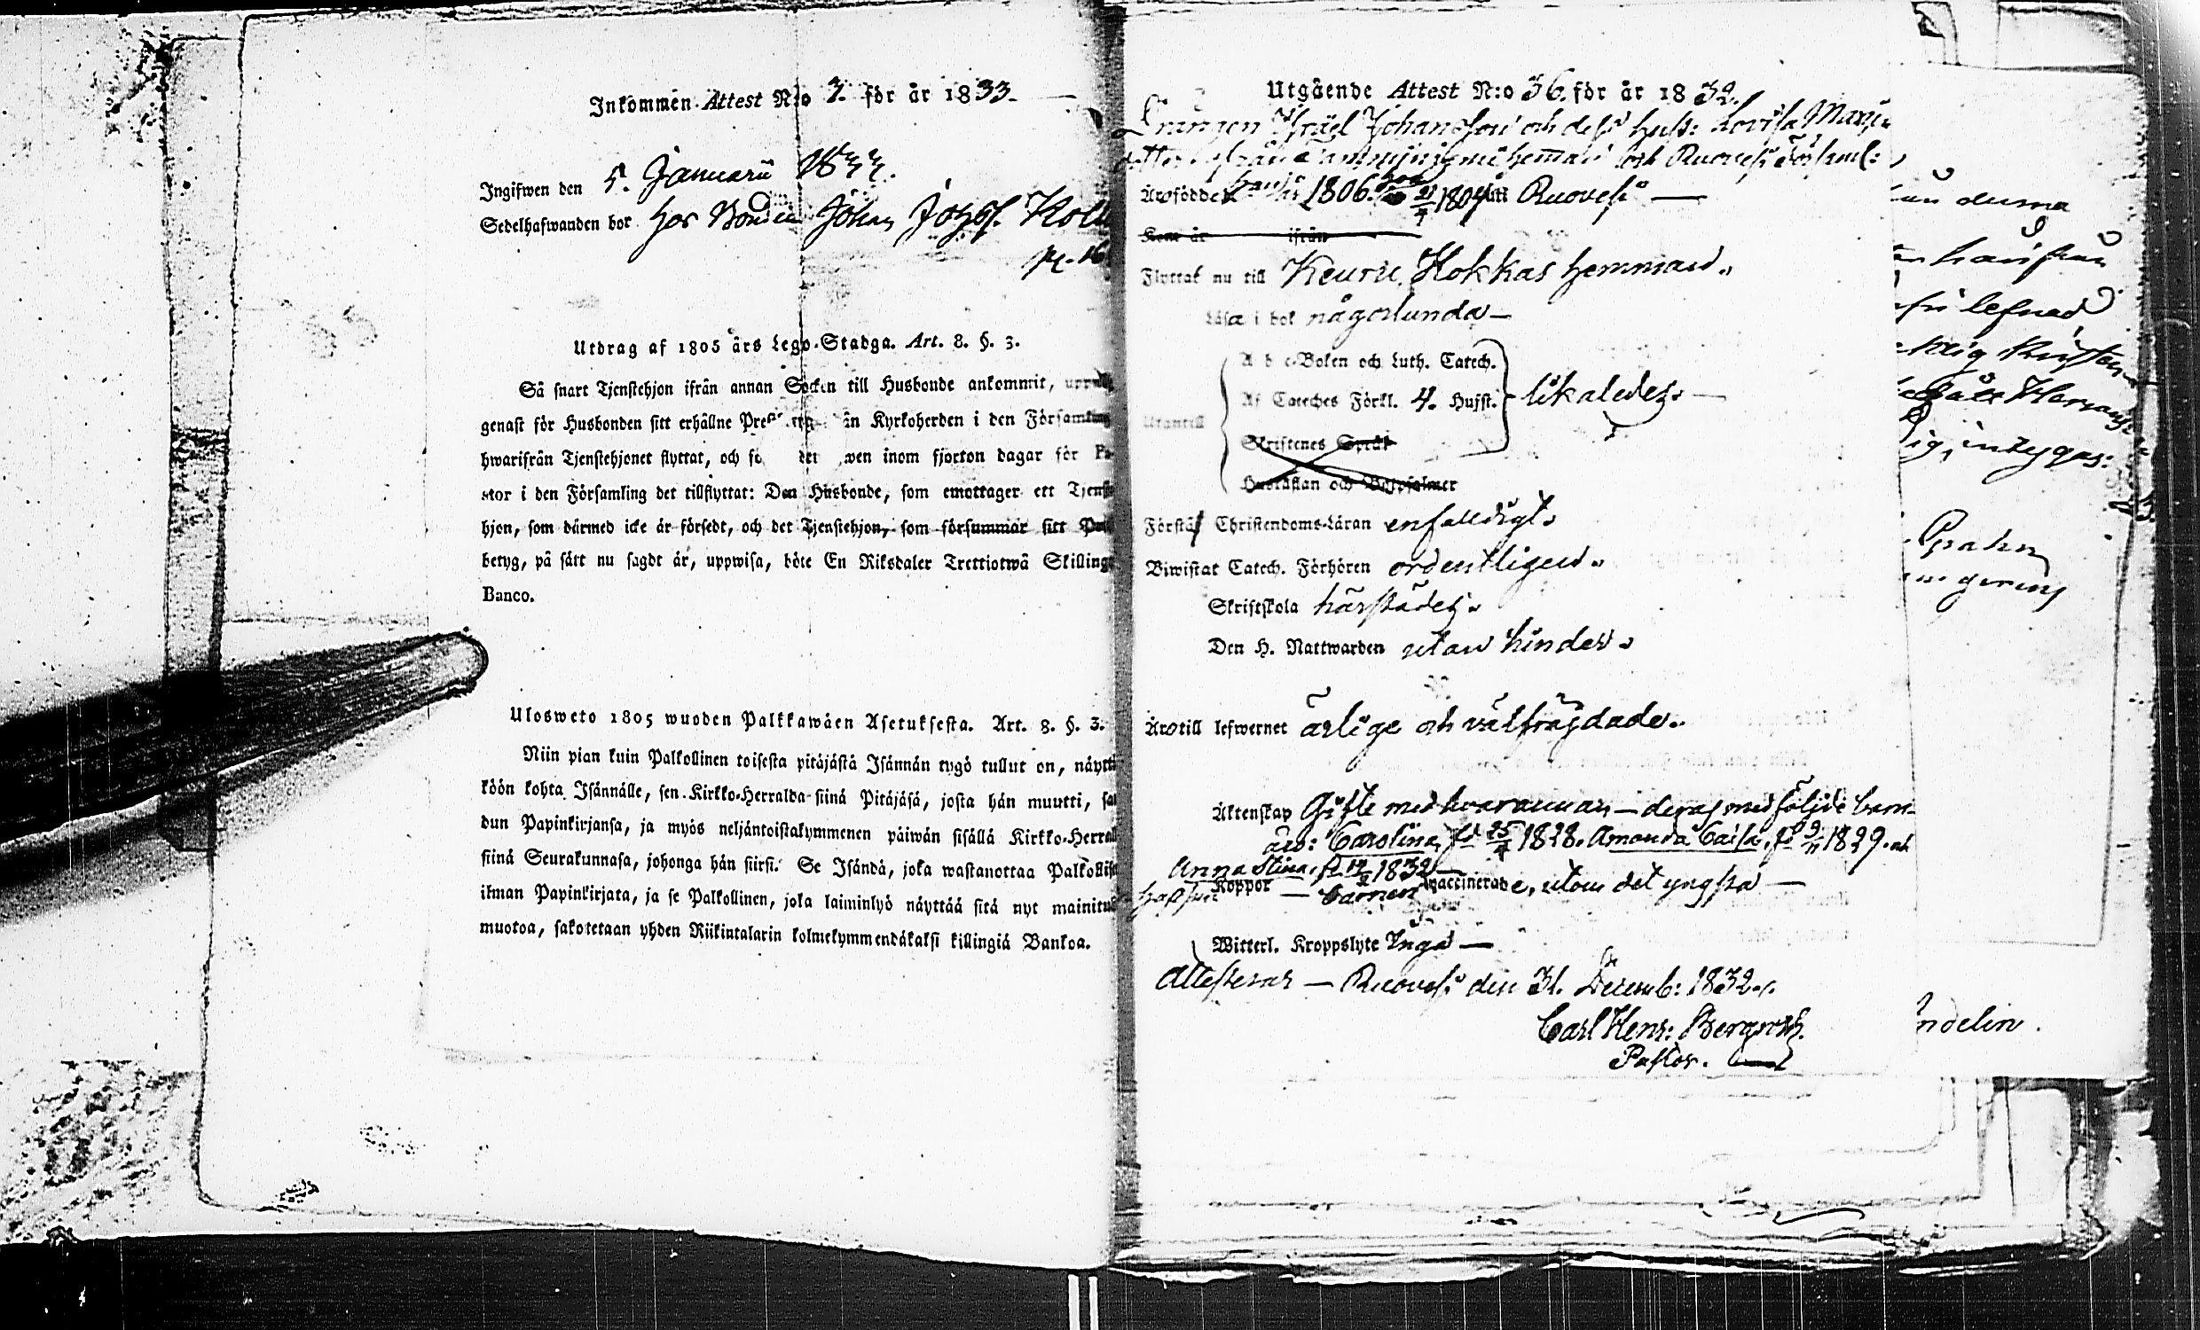 Inkommen Attest N:o 7. för år 1833.
Ingifwen den 5. Januarii 1833.
Sedelhafwanden bor hos Bonden Johan Jozsf.
Utdrag af 1805 års Lego-Stadga. Art. 8. §. 3.
Så snart Tjenstehjon ifrån annan Socken till Husbonde ankommit,
genast för Husbonden sitt erhållne Kyrkoherden i den Församling
hwarifrån Tjenstehjonet flyttat, och inom fjorton dagar för Pa-
stor i den Församling det tillflyttat: Den Husbonde, som emottager ett Tjenste
hjon, som därmed icke är försedt, och det Tjenstehjon, som försummar sitt
betyg, på sätt nu sagdt är, uppwisa, böte En Riksdaler Trettiotwå Skillingar
Banco.
Ulosweto 1805 wuoden Palkkawäen Asetuksesta. Art. 8. §. 3.
Niin pian kuin Palkollinen toisesta pitäjästä Isännän tygö tullut on, näyttä
köön kohta Isännälle, sen Kirkko-Herralda siinä Pitäjäsä, josta hän muutti,
dun Papinkirjansa, ja myös neljäntoistakymmenen päiwän sisällä Kirkko-Herralle
siinä Seurakunnasa, johonga hän siirsi. Se Isändä, joka wastanottaa Palkollisen
ilman Papinkirjata, ja se Palkollinen, joka laiminlyö näyttää sitä nyt mainitulla
muotoa, sakotetaan yhden Riikintalarin kolmekymmendäkaksi killingiä Bankoa.
Utgående Attest N:o 36. för år 1832.
Israël Johansson och dess hust: Lovisa
hemman och Ruovesi
Äro födde 1806. 21/4 1804 i Ruovesi —
Kom år ifrån
Flyttat nu till Keuru, Hokkas hemman.
Läsa i bok någorlunda —
A b c-Boken och Luth. Catech.
Af Cateches Förkl. 4. Hufst. likaledes. —
Utantill
Skriftenes Språk
Hustaflan och Botpsalmer
Förstå Christendoms-Läran enfaldigt.
Biwistat Catech. Förhören ordentligen.
Skriftskola härstädes.
Den H. Nattwarden utan hinder.
Äro till lefwernet ärlige och välfrägdade.
Äktenskap Gifte med hvarannan — deras medföljde barn
äro: Carolina, fd 25/4 1828. Amanda Caisa, fd 9/11 1829. och
Anna Stina, fd 14/2 1832 —
Koppor — barnen Waccinerade, utom det yngsta —
Witterl. Kroppslyte Inga —
Attesterar — Ruovesi den 31. Decemb: 1832.
Carl Henr: Bergroth.
Pastor.
lefnad
intygas:
ndelin.